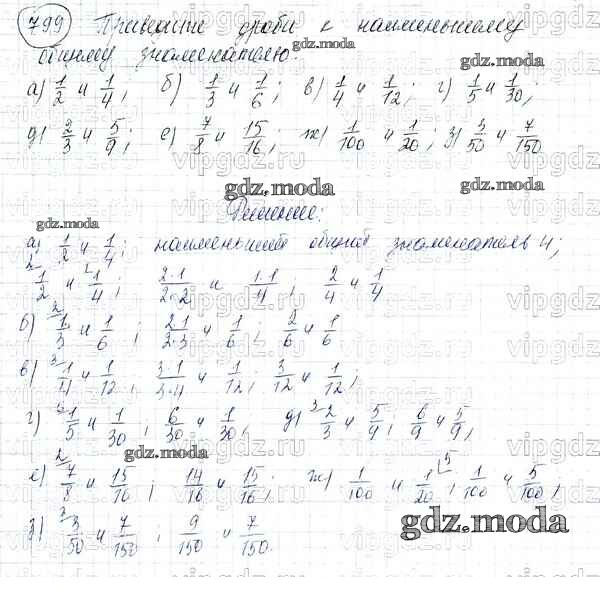 799 Приведите дроби к наименьшему
общему знаменателю:
gdz.moda
а) 1/2 и 1/4; б) 1/3 и 1/6; в) 1/4 и 1/12; г) 1/5 и 1/30;
gdz.moda
д) 2/3 и 5/9; е) 7/8 и 15/16; ж) 1/100 и 1/20; з) 3/50 и 7/150
gdz.moda
gdz.moda
Решение:
gdz.moda
а) 1/2 и 1/4; наименьший общий знаменатель 4;
2 1/2 и 1 1/4; 2·1/2·2 и 1·1/4; 2/4 и 1/4
б) 2 1/3 и 1/6; 2·1/2·3 и 1/6; 2/6 и 1/6
в) 3 1/4 и 1/12; 3·1/3·4 и 1/12; 3/12 и 1/12;
gdz.moda
г) 6 1/5 и 1/30; 6/30 и 1/30; д) 3 2/3 и 5/9; 6/9 и 5/9;
gdz.moda
е) 2 7/8 и 15/16; 14/16 и 15/16; ж) 1/100 и 1/20 5; 1/100 и 5/100;
з) 3 3/50 и 7/150; 9/150 и 7/150.
gdz.moda
vipgdz.ru